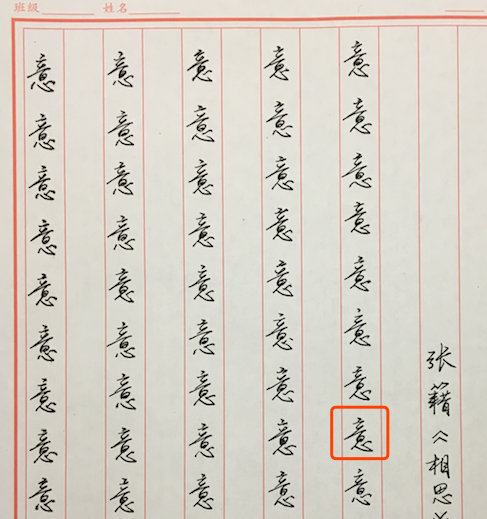 班級 姓名
张籍《相思
意意意意意意意意意
意意意意意意意意意
意意意意意意意意意
意意意意意意意意意
意意意意意意意意意